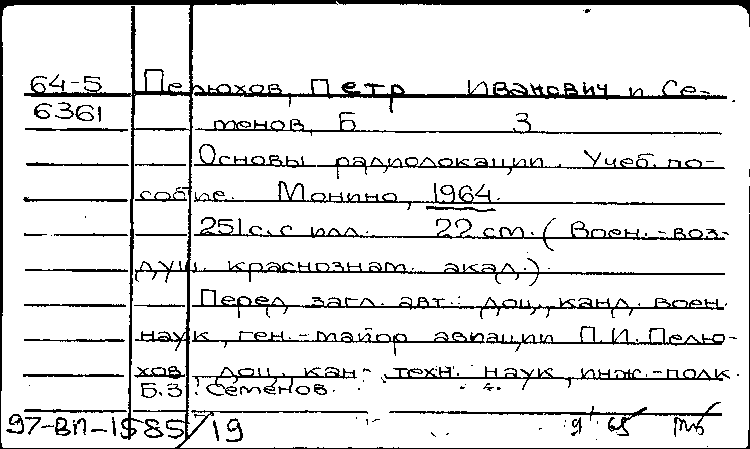 64-5 Пелюхов, Петр Иванович и Се-
6361 менов, Б З
Основы радиолокации. Учеб. по-
собие. Монино, 1964.
251 с. с илл. 22 см. (Воен.-воз-
душ. краснознам. акад.).
Перед загл. авт.: доц., канд. воен.
наук, ген.-майор авиации П.И. Пелю-
хов, доц. кан- техн. наук, инж.-полк.
Б.З. Семенов.
97-ВП-1585/19 9 65